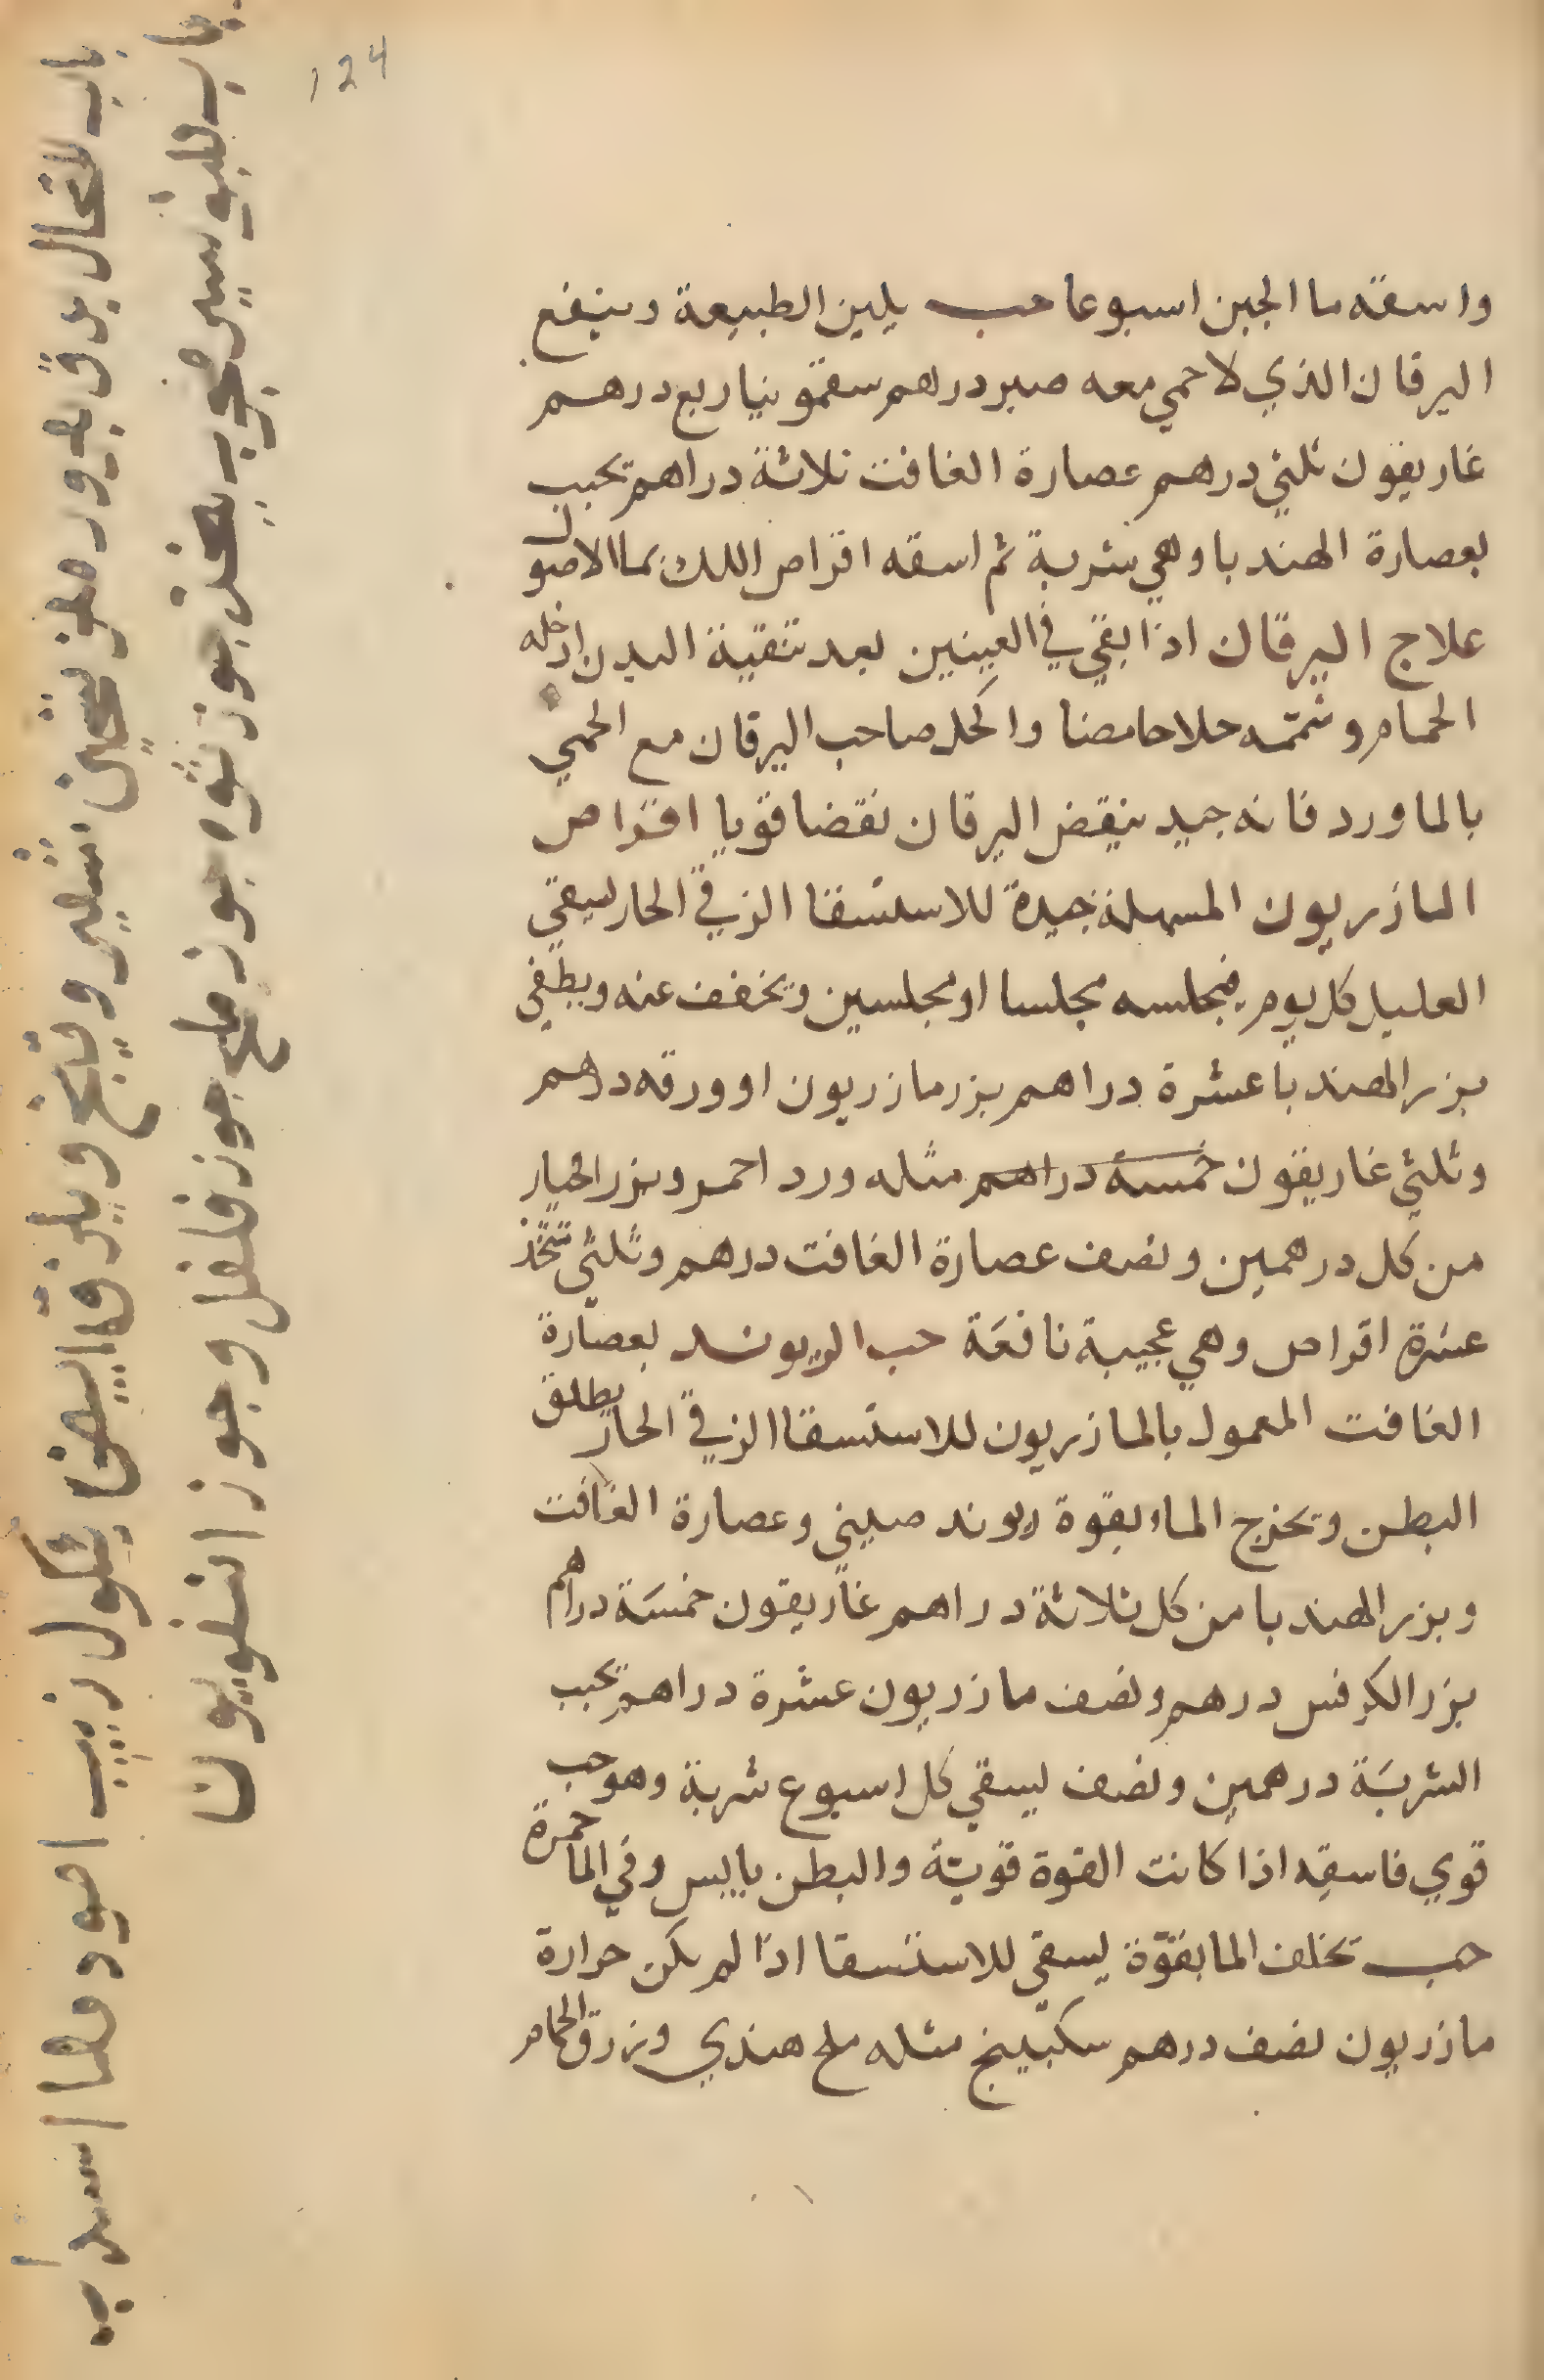 124
واسقه ما الجبن اسبوعا حب يلين الطبيعة وينفع
اليرقان الذي لا حمي معه صبر درهم سقمونيا ربع درهم
غاريقون ثلثي درهم عصارة الغافت ثلاثة دراهم تحبب
بعصارة الهندبا وهي شربة ثم اسقه اقراص اللك بما الاصول
علاج اليرقان اذا بقي في العينين بعد تنقية البدن ادخله
الحمام وشممه خلا حامضا واكحل صاحب اليرقان مع الحمي
بالماورد فانه جيد ينقض اليرقان نقضا قويا اقراص
المازريون المسهلة جيدة للاستسقا الزقي الحار يسقي
العليل كل يوم فيجلسه مجلسا او مجلسين ويخفف عنه ويطفي
بزر الهندبا عشرة دراهم بزر مازريون او ورقه درهم
وثلثي غاريقون خمسة دراهم مثله ورد احمر وبزر الخيار
من كل درهمين ونصف عصارة الغافت درهم وثلثي تتخذ
عشرة اقراص وهي عجيبة نافعة حب الريوند بعصارة
الغافت المعمول بالمازريون للاستسقا الزقي الحار يطلق
البطن ويخرج الما بقوة ريوند صيني وعصارة الغافت
وبزر الهندبا من كل ثلاثة دراهم غاريقون خمسة دراهم
بزر الكرفس درهم ونصف مازريون عشرة دراهم تحبب
الشربة درهمين ونصف يسقي كل اسبوع شربة وهو حب
قوي فاسقه اذا كانت القوة قوية والبطن يابس وفي الما حمرة
حب تخلف الما بقوة يسقي للاستسقا اذا لم يكن حرارة
مازريون نصف درهم سكبينج مثله ملح هندي وزرق الحمام
باب
جوز جوز ملح جوز فلفل وجوز
باب
زبيب اسود